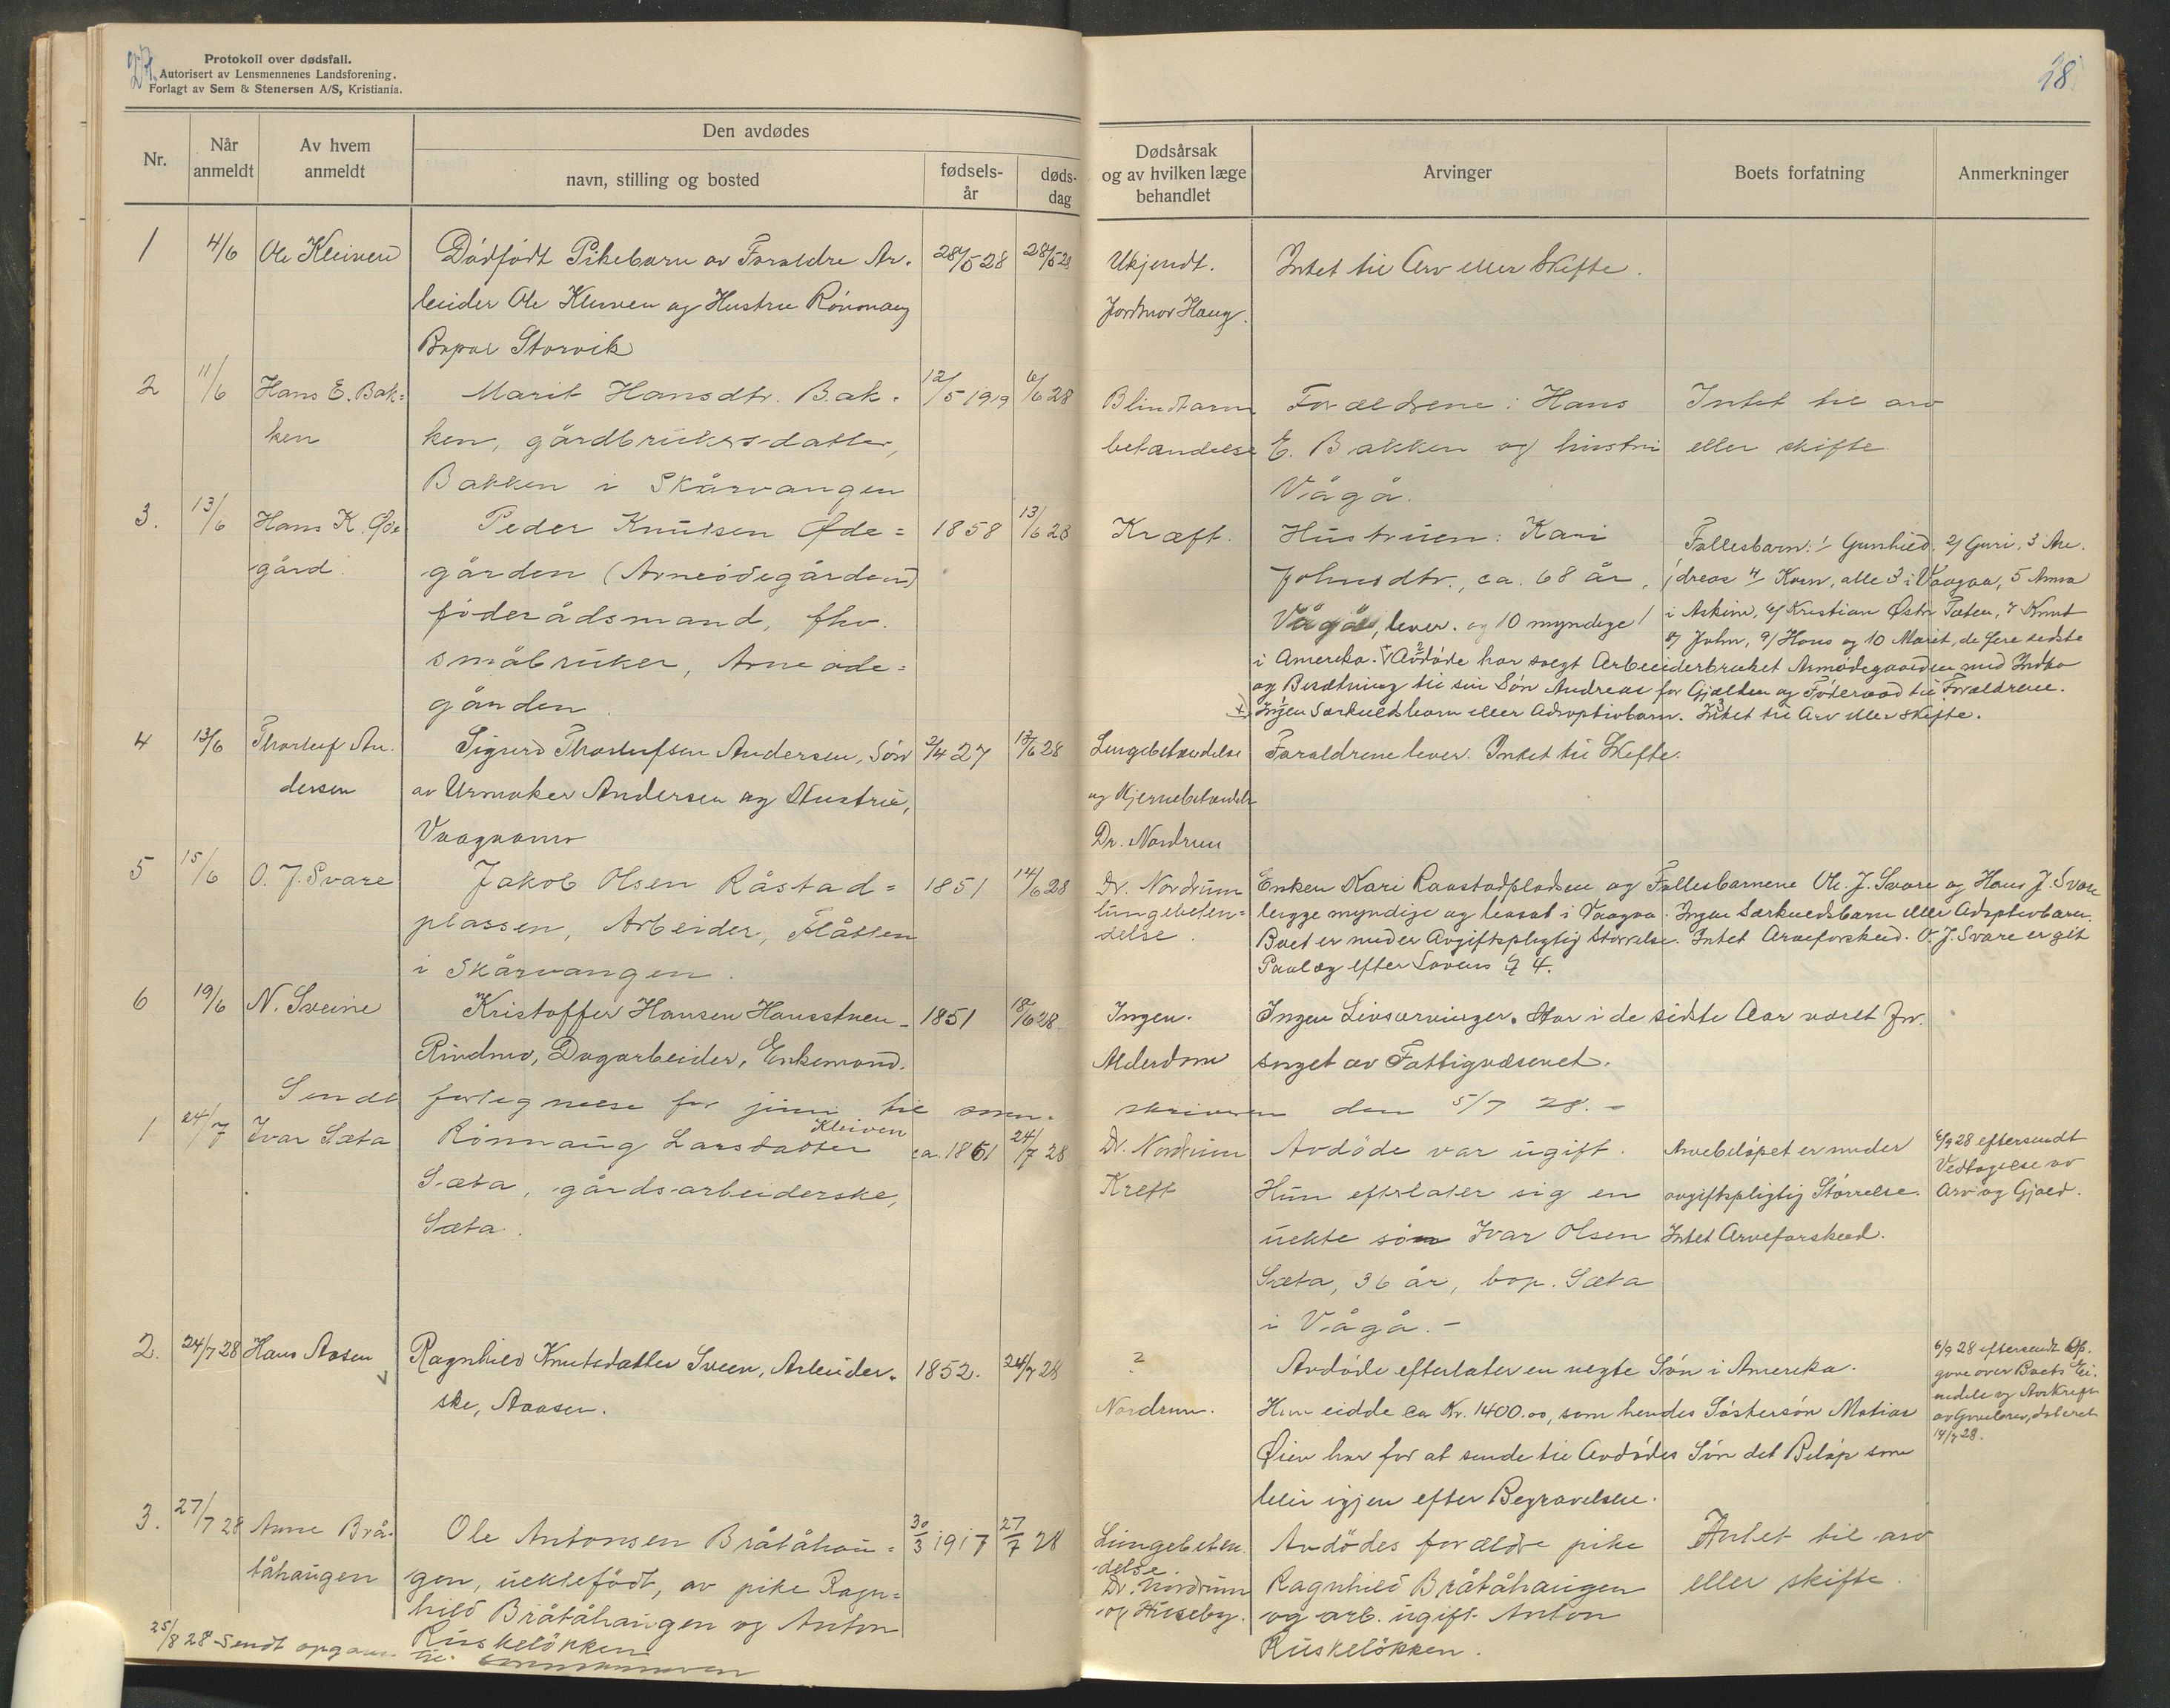 Protokoll over dødsfall.
Autorisert av Lensmennenes Landsforening.
Forlagt av Sem & Stenersen A/S, Kristiania.
18
Nr.
Når anmeldt
Av hvem anmeldt
Den avdødes
navn, stilling og bosted
fødsels-år
døds-dag
Dødsårsak og av hvilken læge behandlet
Arvinger
Boets forfatning
Anmerkninger
1 4/6 Ole Kleiven Dødfødt Pikebarn av Forældre Ar- 28/5 28 28/5 28 Ukjendt. Intet til Arv eller Skifte.
beider Ole Kleiven og Hustru Rönnaug Jordmor Haug.
Bopæl Storvik
2 11/6 Hans E. Bak= Marit Hansdtr. Bak- 12/5 1919 6/6 28 Blindtarm Forældrene: Hans Intet til arv
ken ken, gårdbrukersdatter, betændelse E. Bakken og hustru eller skifte
Bakken i Skårvangen Vågå.
3. 13/6 Hans K. Øde Peder Knutsen Øde= 1858 13/6 28 Kræft. Hustruen: Kari Fællesbarn: 1/ Gunhild, 2/ Guri, 3 An-
gård. gården (Arneødegården) Johnsdtr., ca. 68 år, dreas 4/ Korn, alle 3 i Vaagaa, 5 Anna
föderådsmand, fhv. Vågå, lever. og 10 myndige i Askim, 6/ Kristian Østr Toten, 7 Knut
8/ John, 9/ Hans og 10 Marit, de fire sidste
småbruker, Arneøde= i Amerika. Avdöde har solgt Arbeiderbruket Arnødegaarden med Indbo
og Besætning til sin Sön Andreas for Gjælden og Föderaad til Forældrene.
gården. Ingen Særkuldsbarn eller Adoptivbarn. Intet til Arv eller Skifte.
4 13/6 Thorleif An- Sigurd Thorleifsen Andersen, Sön 2/4 27 13/6 28 Lungebetændelse Forældrene lever. Intet til Skifte.
dersen av Urmaker Andersen og Hustru, og Hjernebetændelse
Vaagaamo Dr. Nordrum
5 15/6 O. J. Svare Jakob Olsen Råstad= 1851 14/6 28 Dr. Nordrum Enken Kari Raastadpladsen og Fællesbarnene Ole J. Svare og Hans J. Svare
plassen, Arbeider, Flåtten lungebeten= begge myndige og bosat i Vaagaa. Ingen Særkuldsbarn eller Adoptivbarn.
delse. Boet er under Avgiftspligtig Störrelse. Intet Arveforskud. O. J. Svare er git
i Skårvangen. Paalæg efter Lovens § 4.
6 19/6 N. Sveine Kristoffer Hansen Hansstuen- 1851 18/6 28 Ingen. Ingen Livsarvinger. Har i de sidste Aar været for-
Rindmo, Dagarbeider, Enkemand. Alderdom sörget av Fattigvæsenet.
Sendt fortegnelse for juni til soren- skriveren den 5/7 28.-
1 24/7 Ivar Sæta Rönnaug Larsdatter Kleiven ca. 1861 24/7 28 Dr. Nordrum Avdöde var ugift. Arvebeløpet er under 6/9 28 eftersendt
Vedtagelse av
Sæta, gårdsarbeiderske, Kreft Hun efterlater sig en avgiftspligtig Störrelse. Arv og Gjæld.
Sæta. uekte sön Ivar Olsen Intet Arveforskud.
Sæta, 36 år, bop. Sæta
i Vågå.-
2. 24/7 28 Hans Aasen Ragnhild Knutsdatter Sveen, Arbeider- 1852. 24/7 28 ? Avdöde efterlater en uegte Sön i Amerika. 6/9 28 eftersendt Op-
gave over Boets Ei-
ske, Aaasen. Nordrum. Hun eidde ca Kr. 1400.00, som hendes Söstersön Matias endele og Avskrift
av Gavebrev, datert
14/7 28.
Øien har for at sende til Avdödes Sön det Belöp som
blir igjen efter Begravelsen.
3. 27/7 28 Anne Brå- Ole Antonsen Bråtåhau= 30/3 1917 27/7 28 Lungebeten- Avdödes forældre pike Intet til arv
delse.
tåhaugen gen, uektefödt, av pike Ragn= Dr. Nordrum Ragnhild Bråtåhaugen eller skifte.
hild Bråtåhaugen og Anton og Huseby. og arb. ugift Anton
Ruskelökken Ruskelökken.
25/8 28 Sendt opgave til